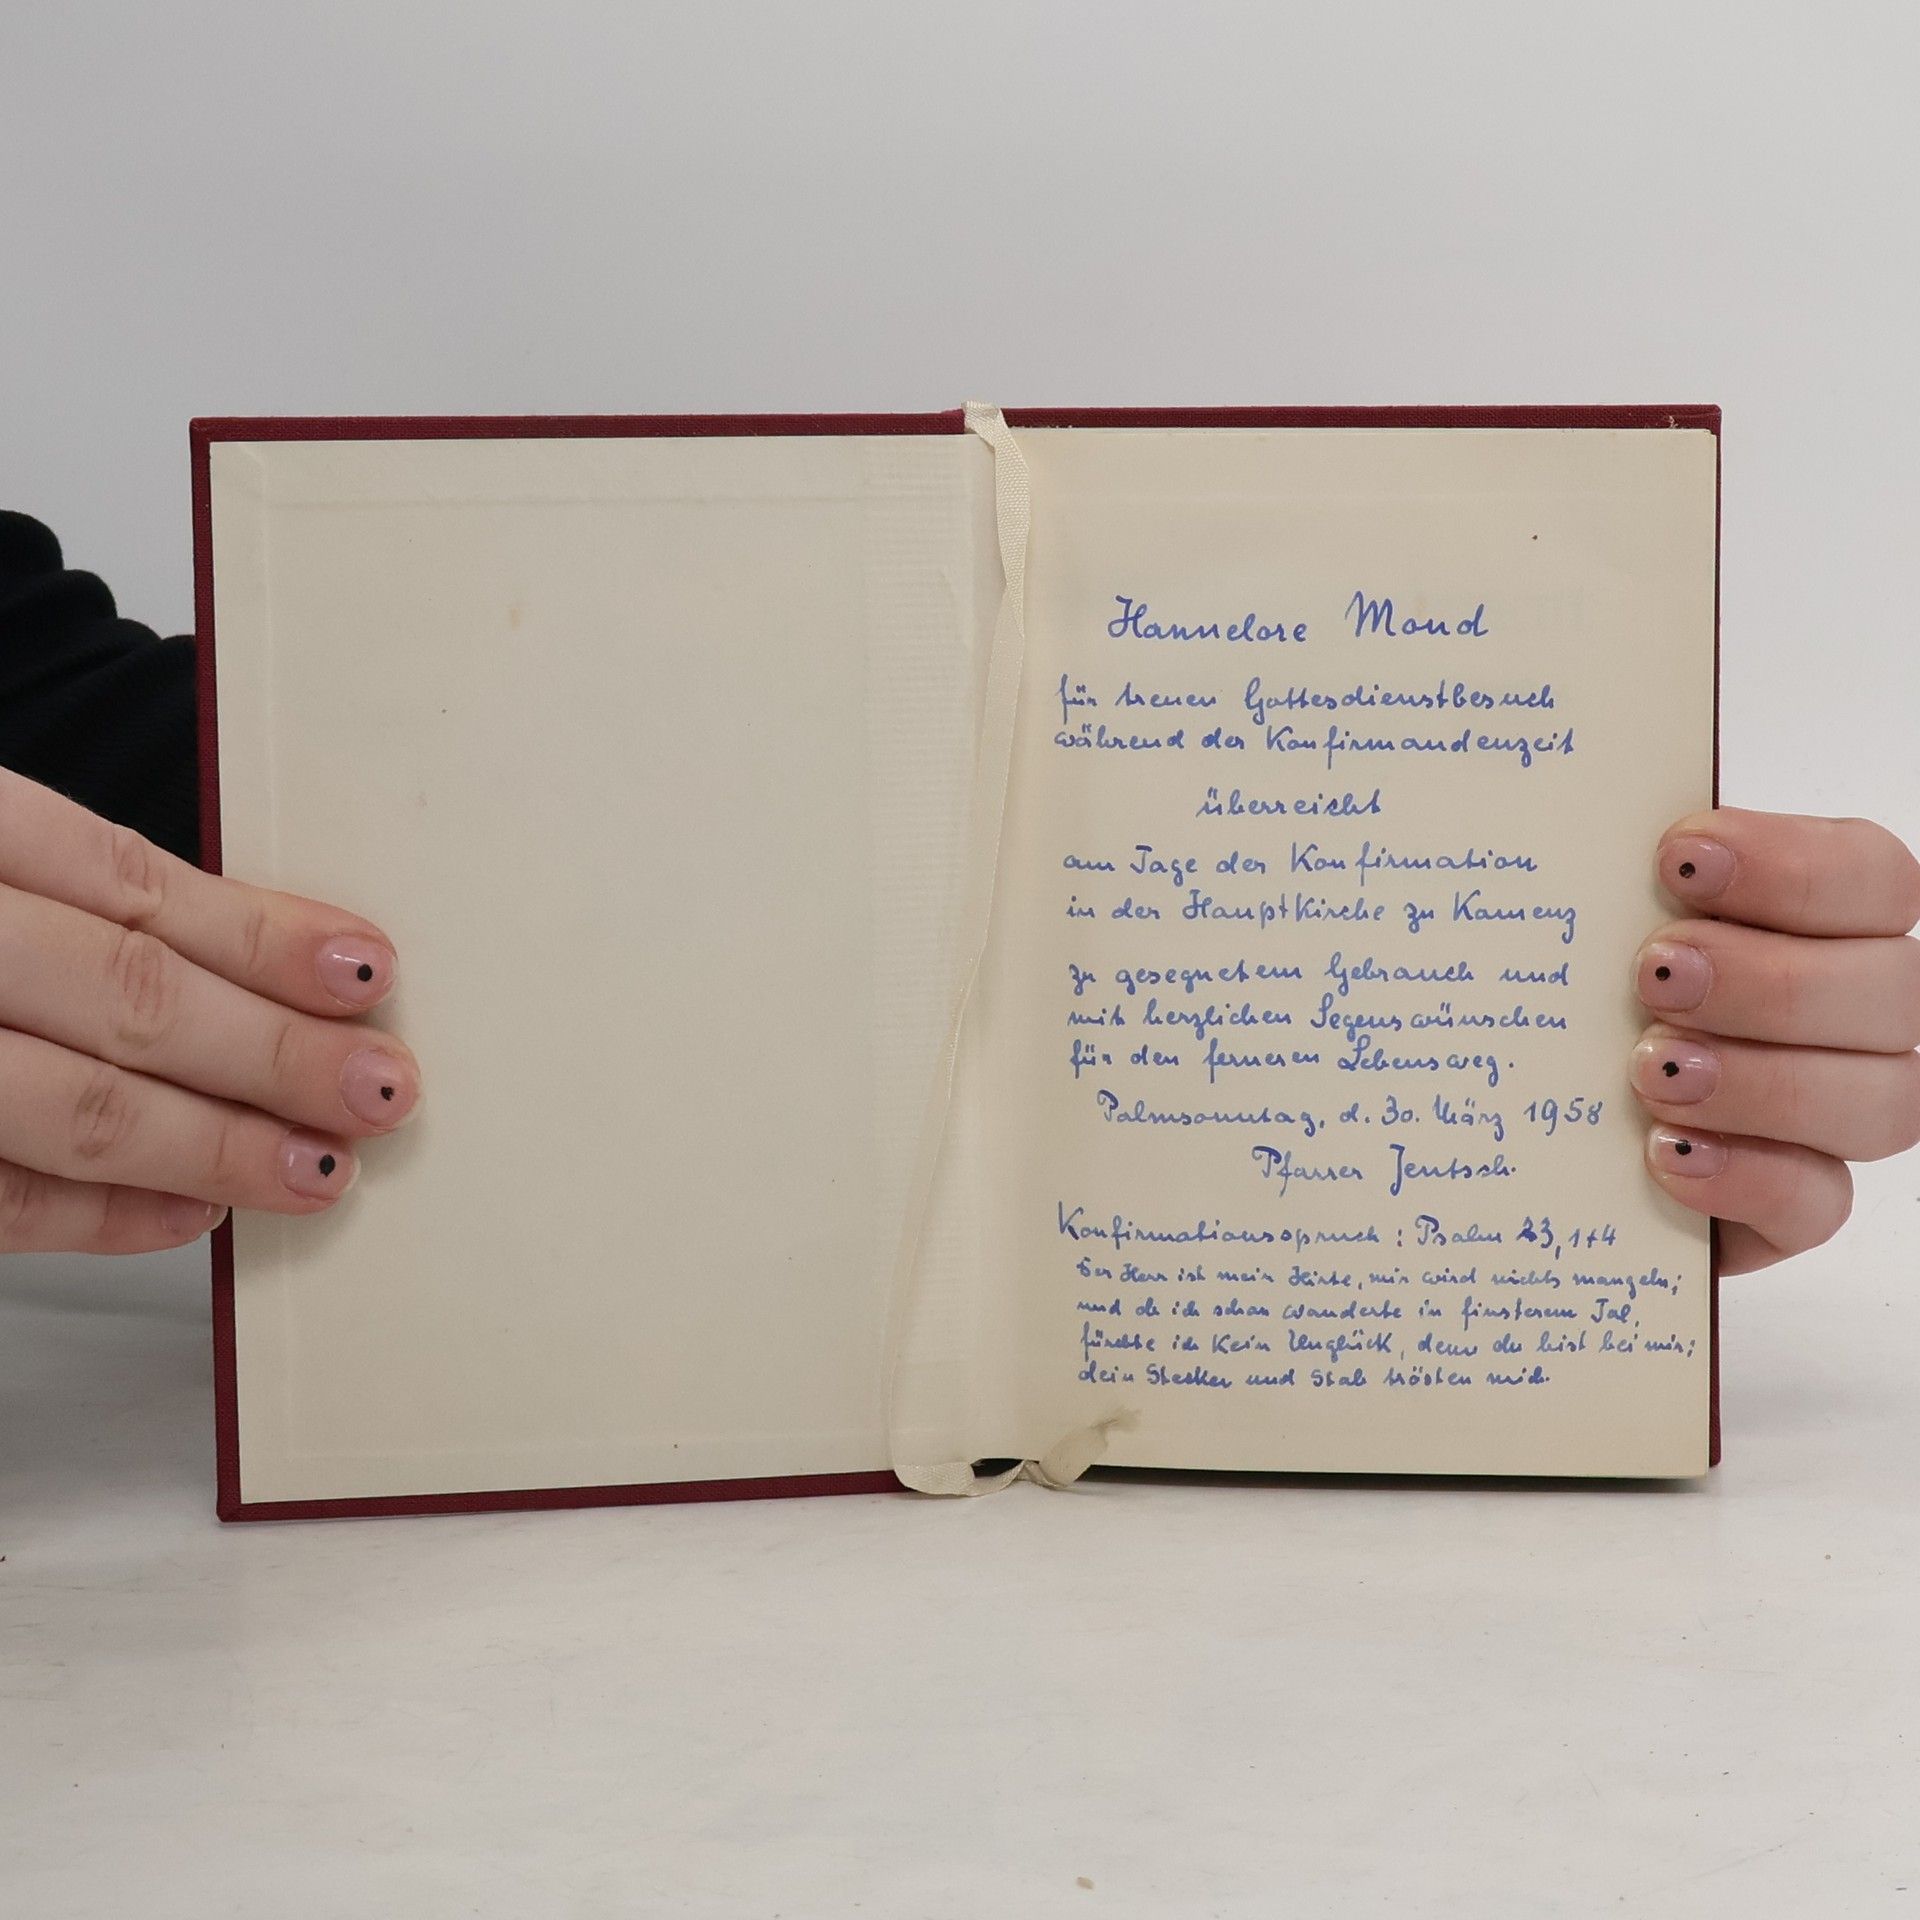 Hannelore Mond
für treuen Gottesdienstbesuch
während der Konfirmandenzeit
überreicht
am Tage der Konfirmation
in der Hauptkirche zu Kamenz
zu gesegnetem Gebrauch und
mit herzlichen Segenswünschen
für den ferneren Lebensweg.
Palmsonntag, d. 30. März 1958
Pfarrer Jentsch.
Konfirmationsspruch : Psalm 23, 1+4
Der Herr ist mein Hirte, mir wird nichts mangeln;
und ob ich schon wanderte in finsterem Tal,
fürchte ich kein Unglück, denn du bist bei mir;
dein Stecken und Stab trösten mich.